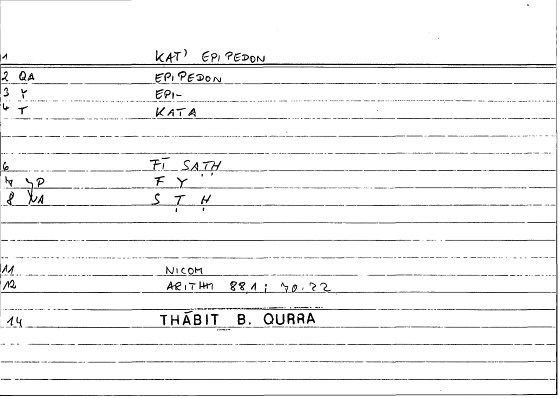 1 KAT' EPIPEDON
2 QA EPIPEDON
3 Y EPI-
4 T KATA
6 FĪ SAṬḤ
7 YP F Y
8 NA S Ṭ Ḥ
11 NICOM
12 ARITHM 88.1; 70.22
14 THĀBIT B. QURRA